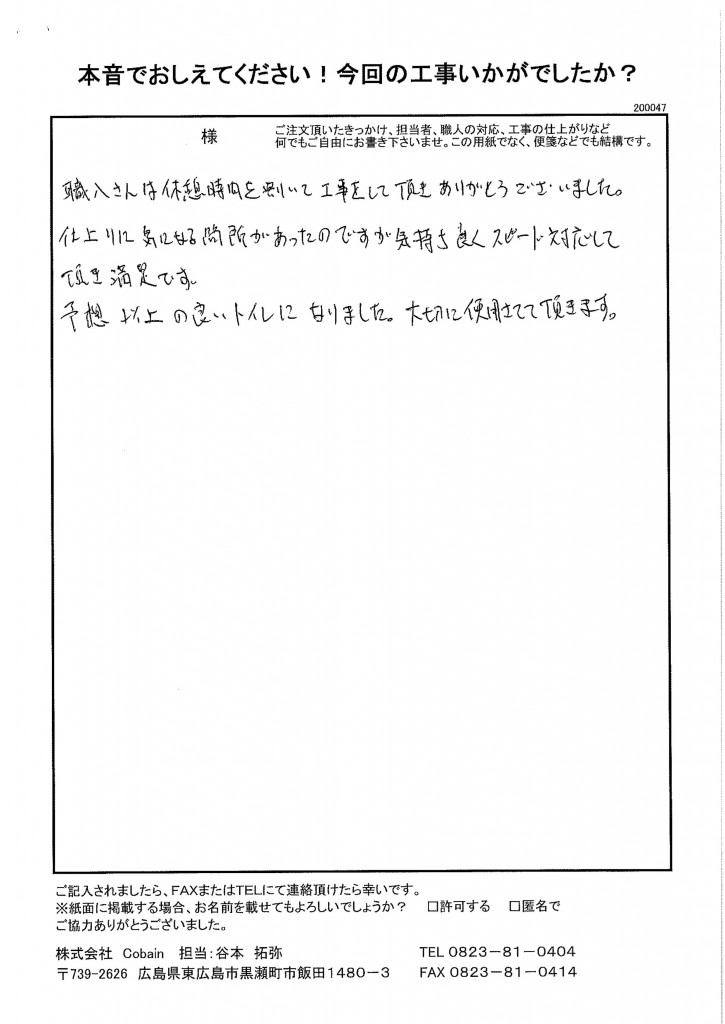 本音でおしえてください！今回の工事いかがでしたか？
200047
様
ご注文頂いたきっかけ、担当者、職人の対応、工事の仕上がりなど
何でもご自由にお書き下さいませ。この用紙でなく、便箋などでも結構です。
職人さんは休憩時間を割いて工事をして頂きありがとうございました。
仕上りに気になる箇所があったのですが気持ち良くスピード対応して
頂き満足です。
予想以上の良いトイレになりました。大切に使用させて頂きます。
ご記入されましたら、FAXまたはTELにて連絡頂けたら幸いです。
※紙面に掲載する場合、お名前を載せてもよろしいでしょうか？　□許可する　□匿名で
ご協力ありがとうございました。
株式会社　Cobain　担当：谷本　拓弥　TEL 0823－81－0404
〒739-2626　広島県東広島市黒瀬町市飯田1480－3　FAX 0823－81－0414